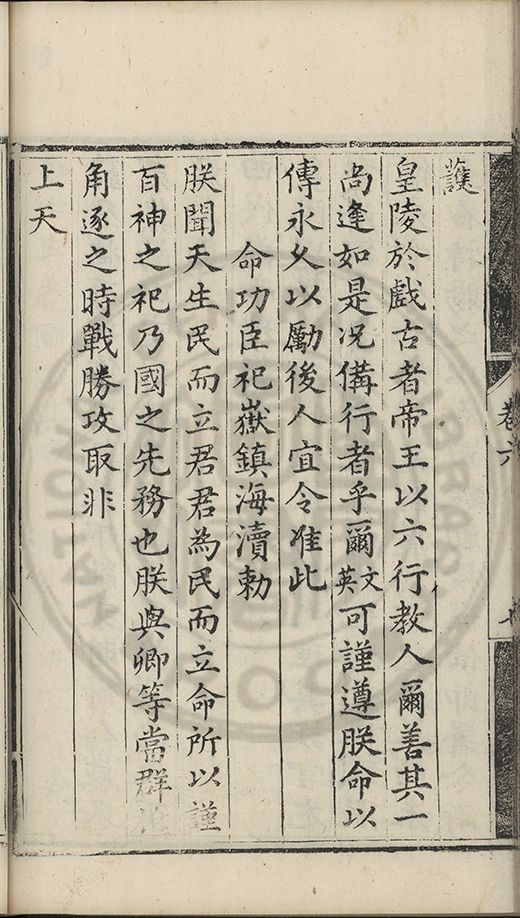 卷六
護
皇陵於戲古者帝王以六行教人爾善其一
尚逢如是况備行者乎爾文英可謹遵朕命以
傳永久以勵後人宜令准此
命功臣祀嶽鎮海瀆勅
朕聞天生民而立君君為民而立命所以謹
百神之祀乃國之先務也朕與卿等當群
角逐之時戰勝攻取非
上天